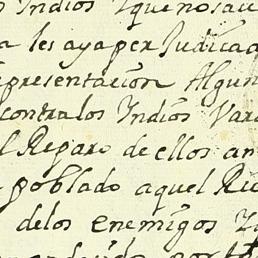 Indios que no sau
a les aya per Judicad
epresentacion Algun
contra los Indios Vara
l Reparo de ellos an
poblado aquel Rei
de los enemigos Y